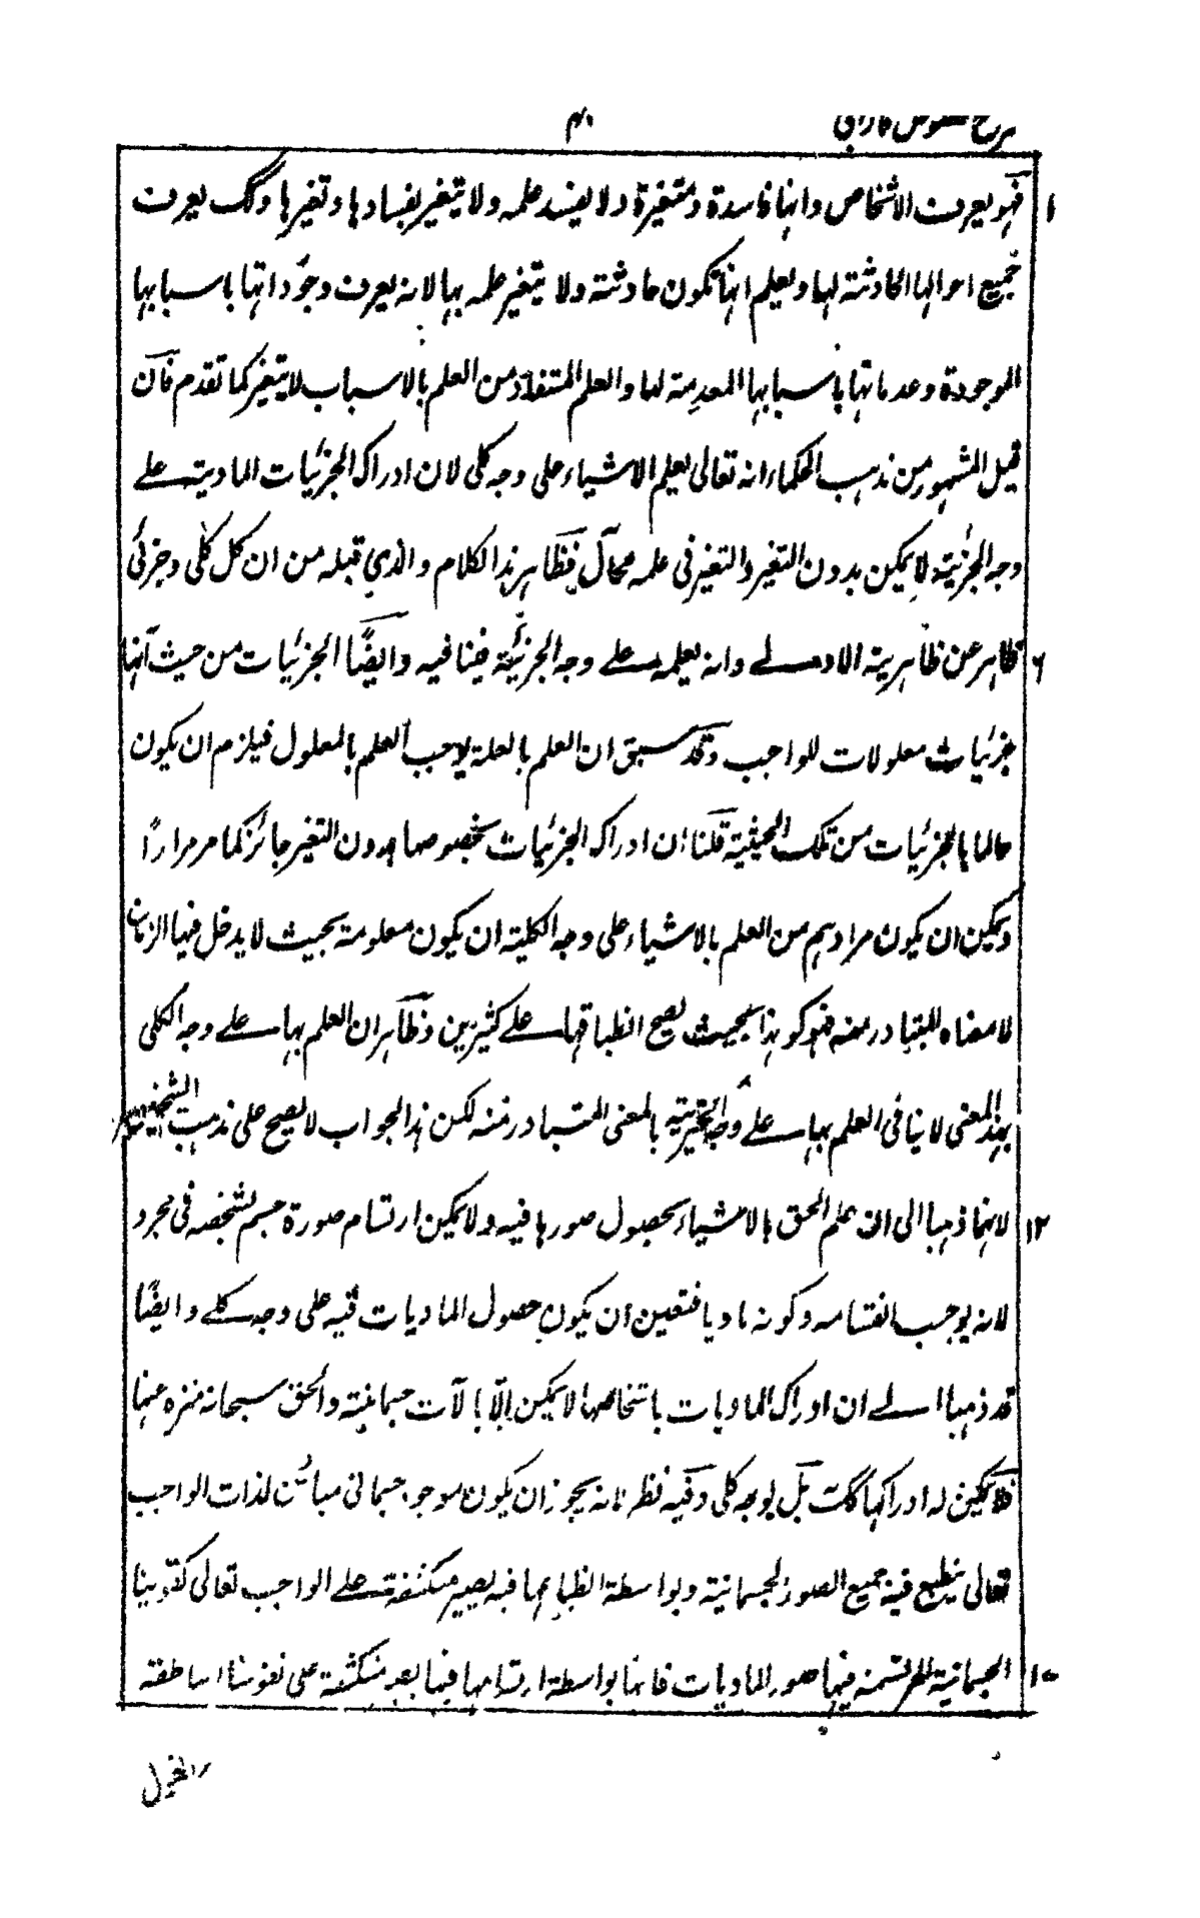 شرح فصوص فارابی
فهو يعرف الاشخاص وانها فاسدة ومتغيرة ولا يفسد علمه ولا يتغير بفسادها وتغيرها وكك يعرف
جميع احوالها الحادثة لها ويعلم انها تكون حادثة ولا يتغير علمه بها لانه يعرف وجوداتها باسبابها
الموجودة وعدماتها باسبابها المعدمة لها والعلم المتفاد من العلم بالاسباب لا يتغير كما تقدم فان
قيل المشهور من مذهب الحكماء انه تعالى يعلم الاشياء على وجه كلى لان ادراك الجزئيات المادية على
وجه الجزئية لا يمكن بدون التغير والتغير فى علمه محال فظاهر هذا الكلام والذي قبله من ان كل كلى وجزئى
٦ ظاهر عن ظاهرية الاولى وانه يعلمه على وجه الجزئية فينا فيه وايضًا الجزئيات من حيث انها
جزئيات معلولات للواجب وقد سبق ان العلم بالعلة يوجب العلم بالمعلول فيلزم ان يكون
عالما بالجزئيات من تلك الحيثية قلنا ان ادراك الجزئيات بخصوصها بدون التغير جائز كما مر مرارًا
ويمكن ان يكون مرادهم من العلم بالاشياء على وجه الكلية ان يكون معلومة بحيث لا يدخل فيها الزمان
لا معناه المتبادر منه فهو كو هذا بحيث يصح انطباقها على كثيرين وظاهر ان العلم بها على وجه الكلى
بهذا المعنى لا ينافى العلم بها على وجه الجزئية بالمعنى المتبادر منه لكن هذا الجواب لا يصح على مذهب الشيخين
١٢ لانهما ذهبا الى ان علم الحق بالاشياء بحصول صورها فيه ولا يمكن ارتسام صورة جسم بشخصه فى مجرد
لانه يوجب انقسامه وكونه ماديا فتعين ان يكون حصول الماديات فيه على وجه كلے وايضًا
قد ذهبا الے ان ادراك الماديات باشخاصها لا يمكن الّا بالآت جسمانية والحق سبحانه منزه عنها
فلا يمكن له ادراكها كك بل بوجه كلى وفيه نظر لانه يجوز ان يكون موجود جسمانى مبائن لذات الواجب
تعالى ينطبع فيه جميع الصور الجسمانية وبواسطة انطباعها فيه يصير منكشفة على الواجب تعالى كقوينا
الجسمانية المرتسمة فيها صور الماديات فانها بواسطة ارتسامها فيها يصير منكشفة على نفوسنا الناطقة